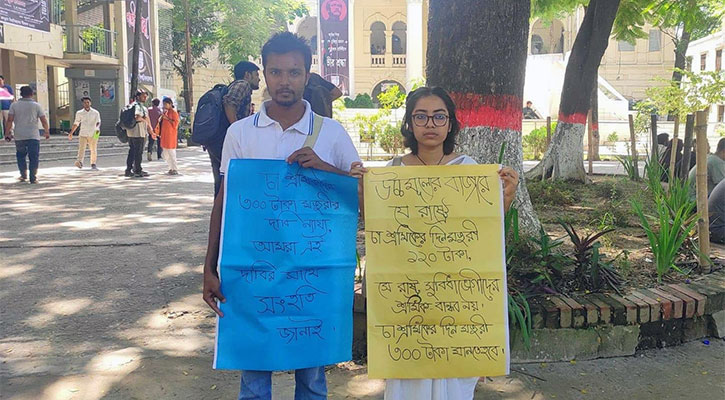 চা শ্রমিকদের
৩০০ টাকা মজুরীর
দাবি ন্যায্য,
আমরা এই
দাবির সাথে
সংহতি
জানাই
উচ্চমূল্যের বাজারে
যে রাষ্ট্রে
চা শ্রমিকের দিনমজুরী
১২০ টাকা,
সে রাষ্ট্র সুবিধাভোগীদের
শ্রমিক বান্ধব নয়।
চা শ্রমিকের দিন মজুরী
৩০০ টাকা মানতে হবে।